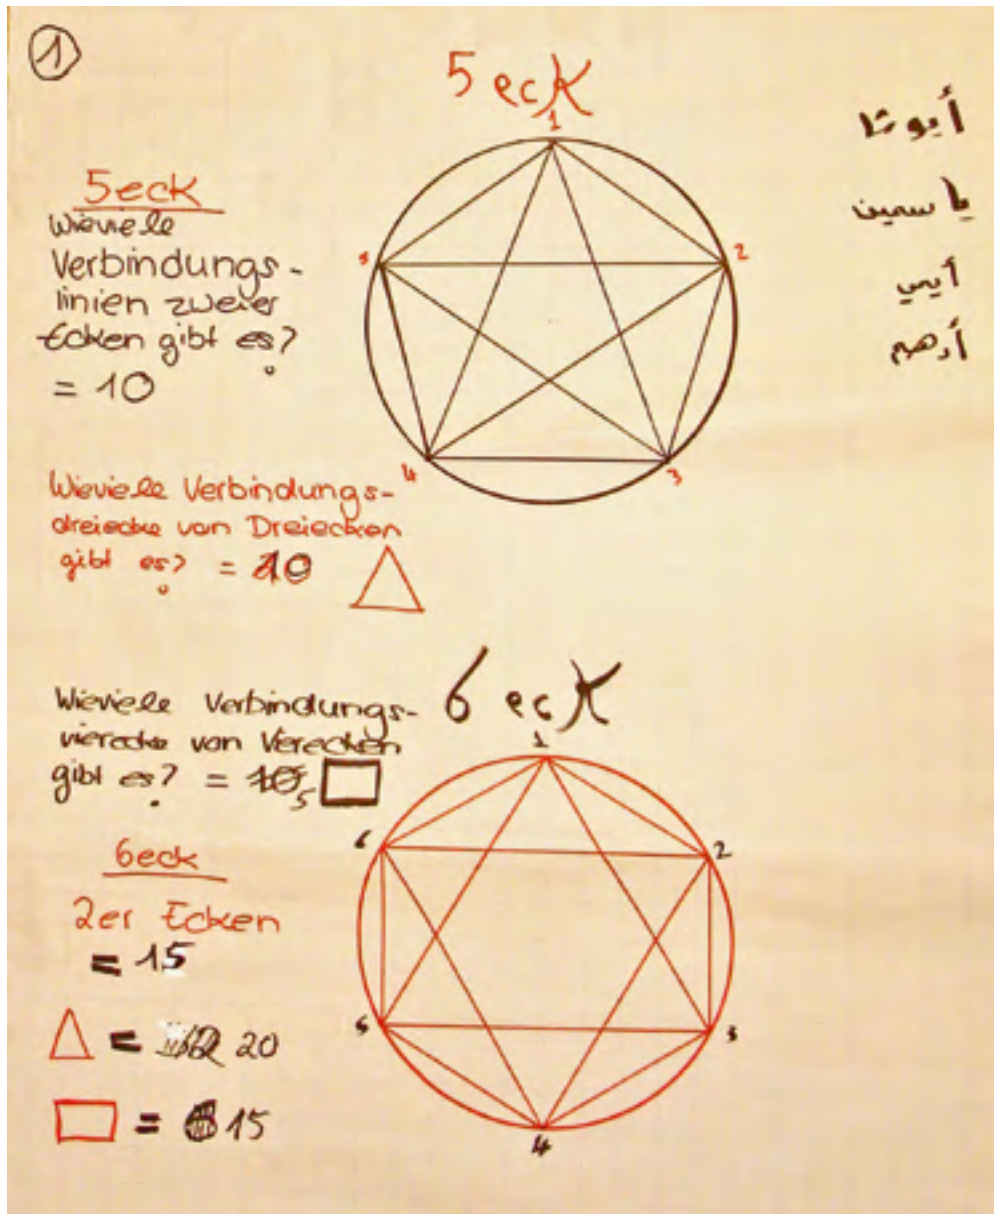 1
5 eck
أيوشا
ياسمين
أيمي
أدهم
5eck
Wieviele
Verbindungs-
linien zweier
Ecken gibt es?
= 10
1
2
3
4
5
Wieviele Verbindungs-
dreiecke von Dreiecken
gibt es? = 10
6 eck
Wieviele Verbindungs-
vierecke von Verecken
gibt es? = 5
6eck
2er Ecken
= 15
= 20
= 15
1
2
3
4
5
6